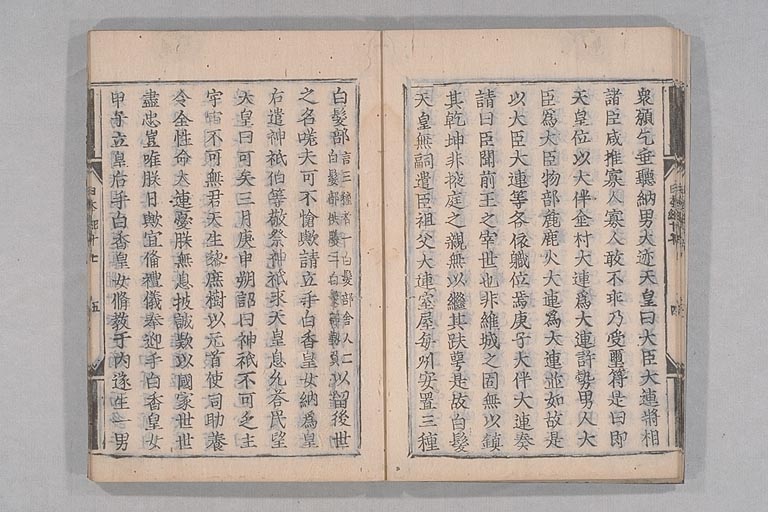 衆願乞垂聽納男大迹天皇曰大臣大連將相
諸臣咸推寡人寡人敢不乖乃受璽符是日即
天皇位以大伴金村大連爲大連許勢男人大
臣爲大臣物部麁鹿火大連爲大連並如故是
以大臣大連等各依軄位焉庚子大伴大連奏
請曰臣聞前王之宰世也非維城之固無以鎮
其乾坤非掖庭之親無以繼其趺萼是故白髮
天皇無嗣遣臣祖父大連室屋每州安置三種
白髮部言三種者一白髮部舍人二白髮部供膳三白髮部靫負以留後世
之名嗟夫可不愴歟請立手白香皇女納爲皇
后遣神祇伯等敬祭神祇求天皇息允荅民望
天皇曰可矣三月庚申朔詔曰神祇不可乏主
宇宙不可無君天生黎庶樹以元首使司助養
令全性命大連憂朕無息披誠款以國家世世
盡忠豈唯朕日歟宜備禮儀奉迎手白香皇女
甲子立皇后手白香皇女脩教于內遂生一男
五